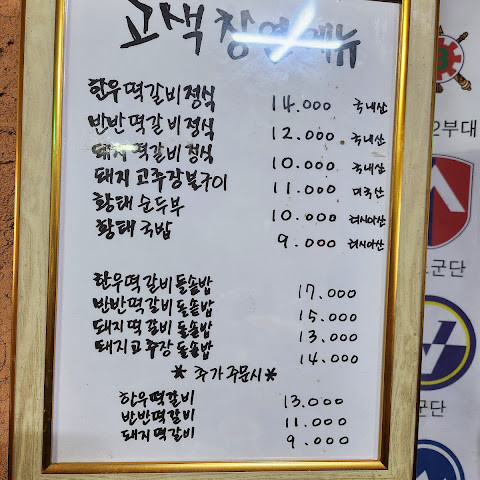 고색 창연 메뉴
한우떡갈비정식 14.000 국내산
반반떡갈비정식 12.000 국내산
돼지떡갈비정식 10.000 국내산
돼지고추장불구이 11.000 미국산
황태순두부 10.000 러시아산
황태국밥 9.000 러시아산
한우떡갈비돌솥밥 17.000
반반떡갈비돌솥밥 15.000
돼지떡갈비돌솥밥 13.000
돼지고추장돌솥밥 14.000
* 추가주문시 *
한우떡갈비 13.000
반반떡갈비 11.000
돼지떡갈비 9.000
2부대
군단
군단